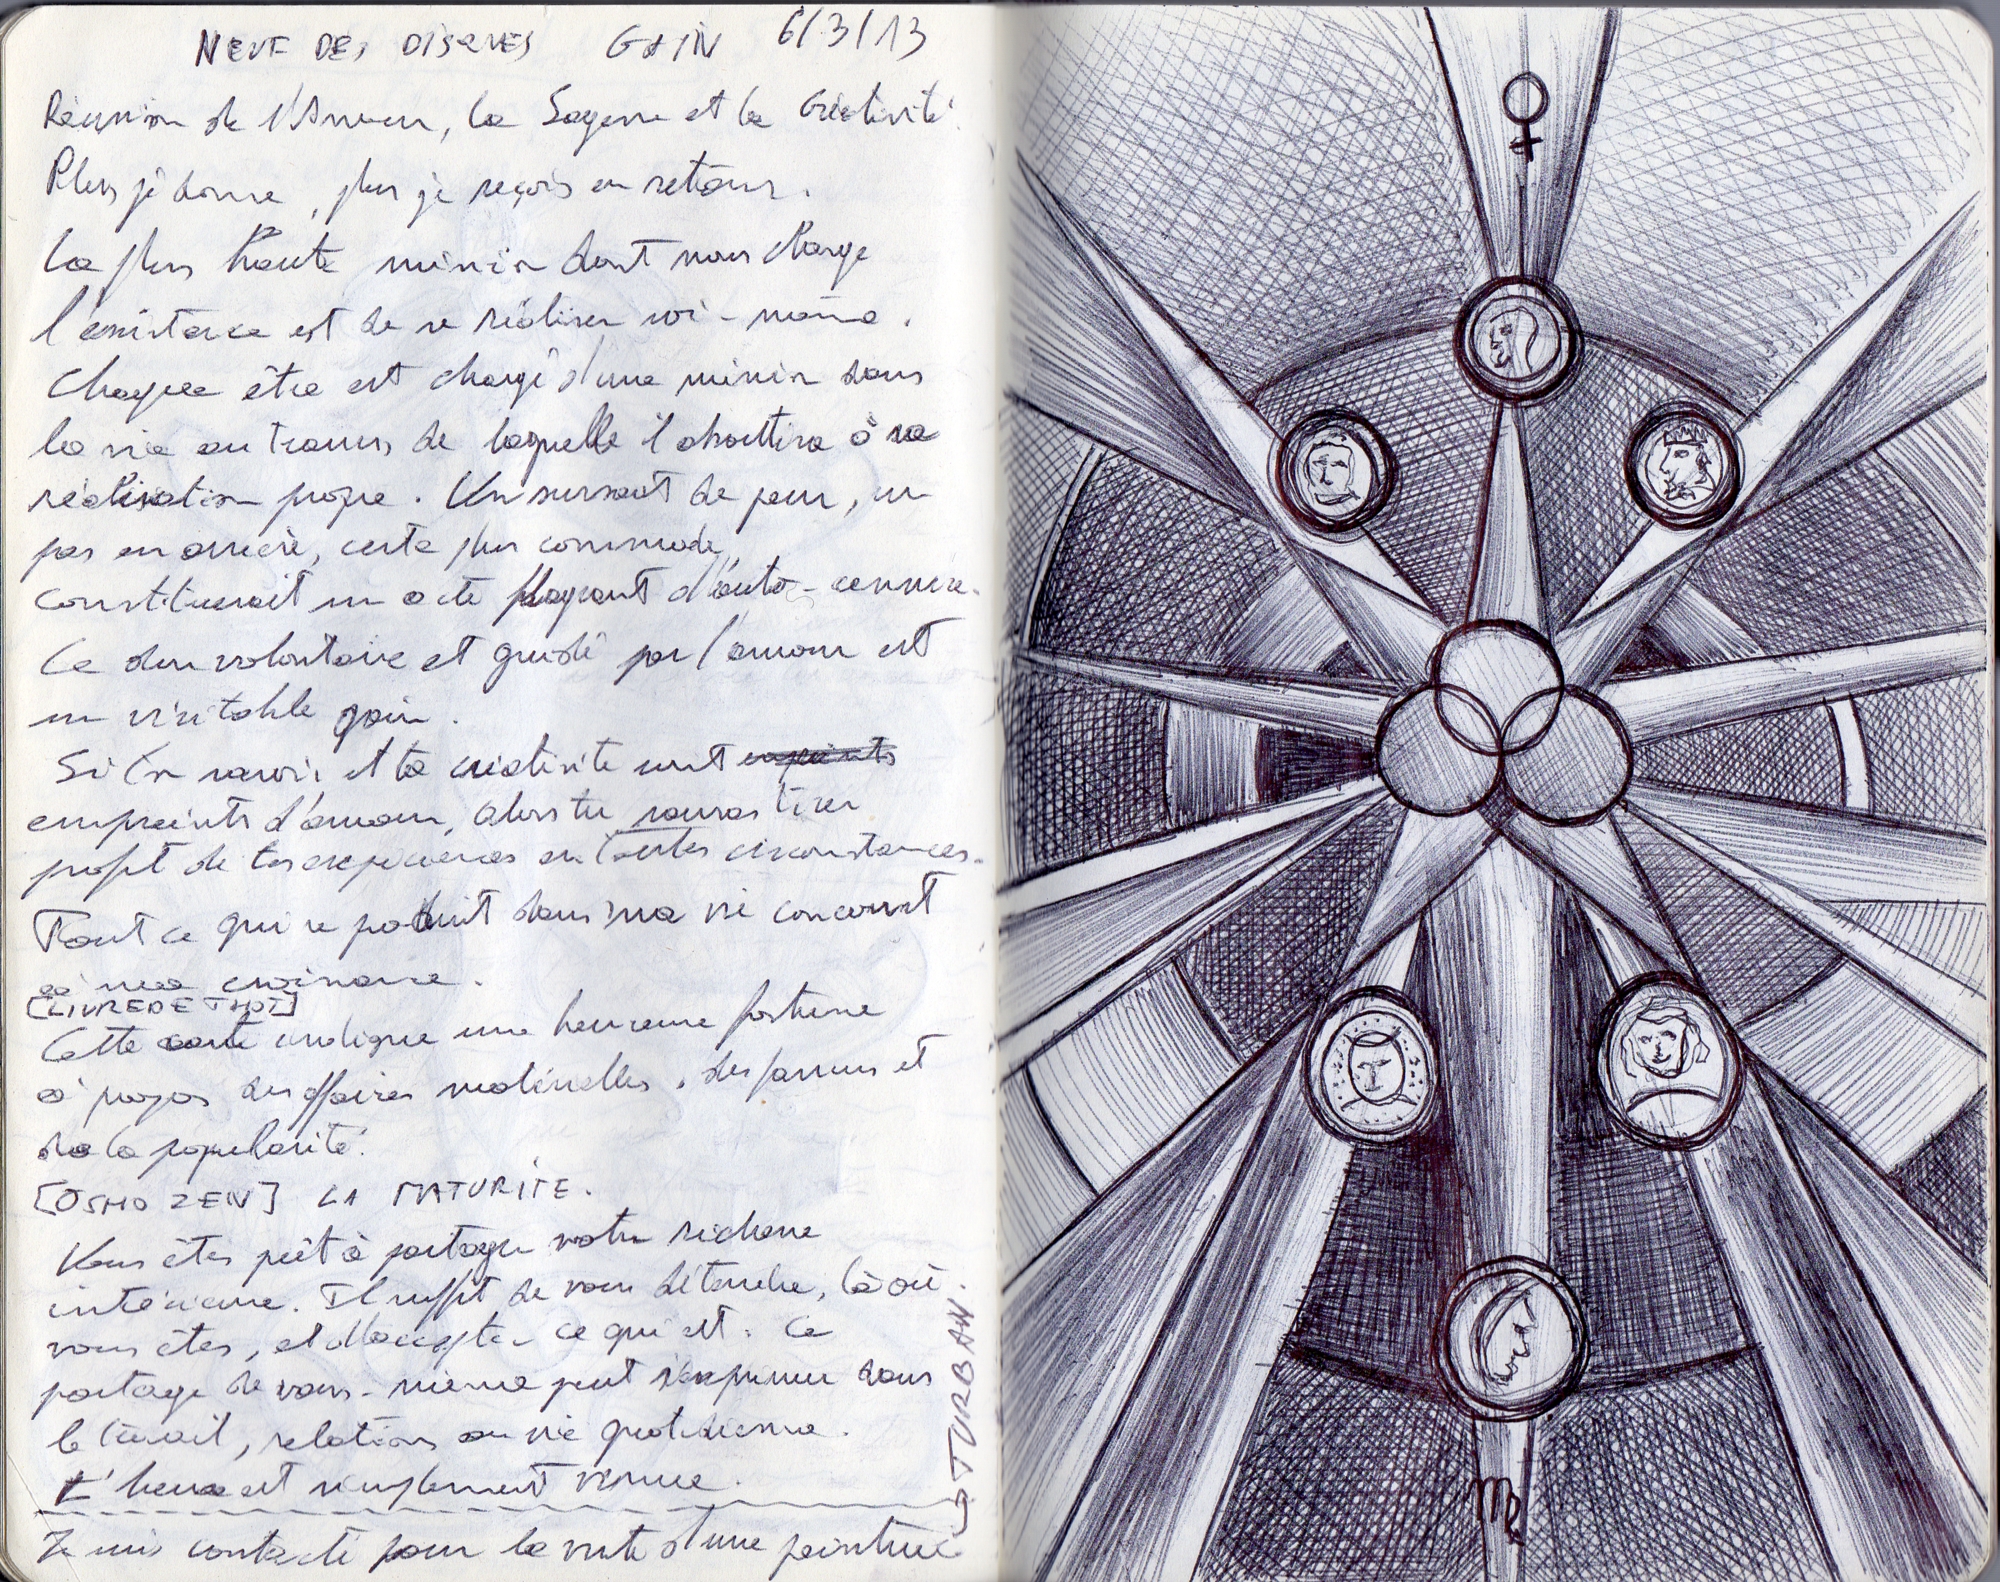 NEUF DES DISQUES GAIN 6/3/13
Réunion de l'Amour, la Sagesse et la Créativité.
Plus je donne, plus je reçois en retour.
La plus haute mission dont nous charge
l'existence est de se réaliser soi-même.
Chaque être est chargé d'une mission dans
la vie au travers de laquelle il aboutira à sa
réalisation propre. Un sursaut de peur, un
pas en arrière, certe plus commode,
constituerait un acte flagrant d'auto-censure.
Ce don volontaire et guidé par l'amour est
un véritable gain.
Si ton savoir et ta créativité sont
empreints d'amour, alors tu sauras tirer
profit de tes expériences en toutes circonstances.
Tout ce qui se produit dans ma vie concourt
à ma croissance.
[LIVRE DE THOT]
Cette carte indique une heureuse fortune
à propos des affaires matérielles, des faveurs et
de la popularité.
[OSHO ZEN] LA MATURITE.
Vous êtes prêt à partager votre richesse
intérieure. Il suffit de vous détendre, là où
vous êtes, et d'accepter ce qui est. Ce
partage de vous-même peut s'exprimer dans
le travail, relations ou vie quotidienne.
L'heure est simplement venue.
Je suis contacté pour la vente d'une peinture
STURBAN.
♀
♍